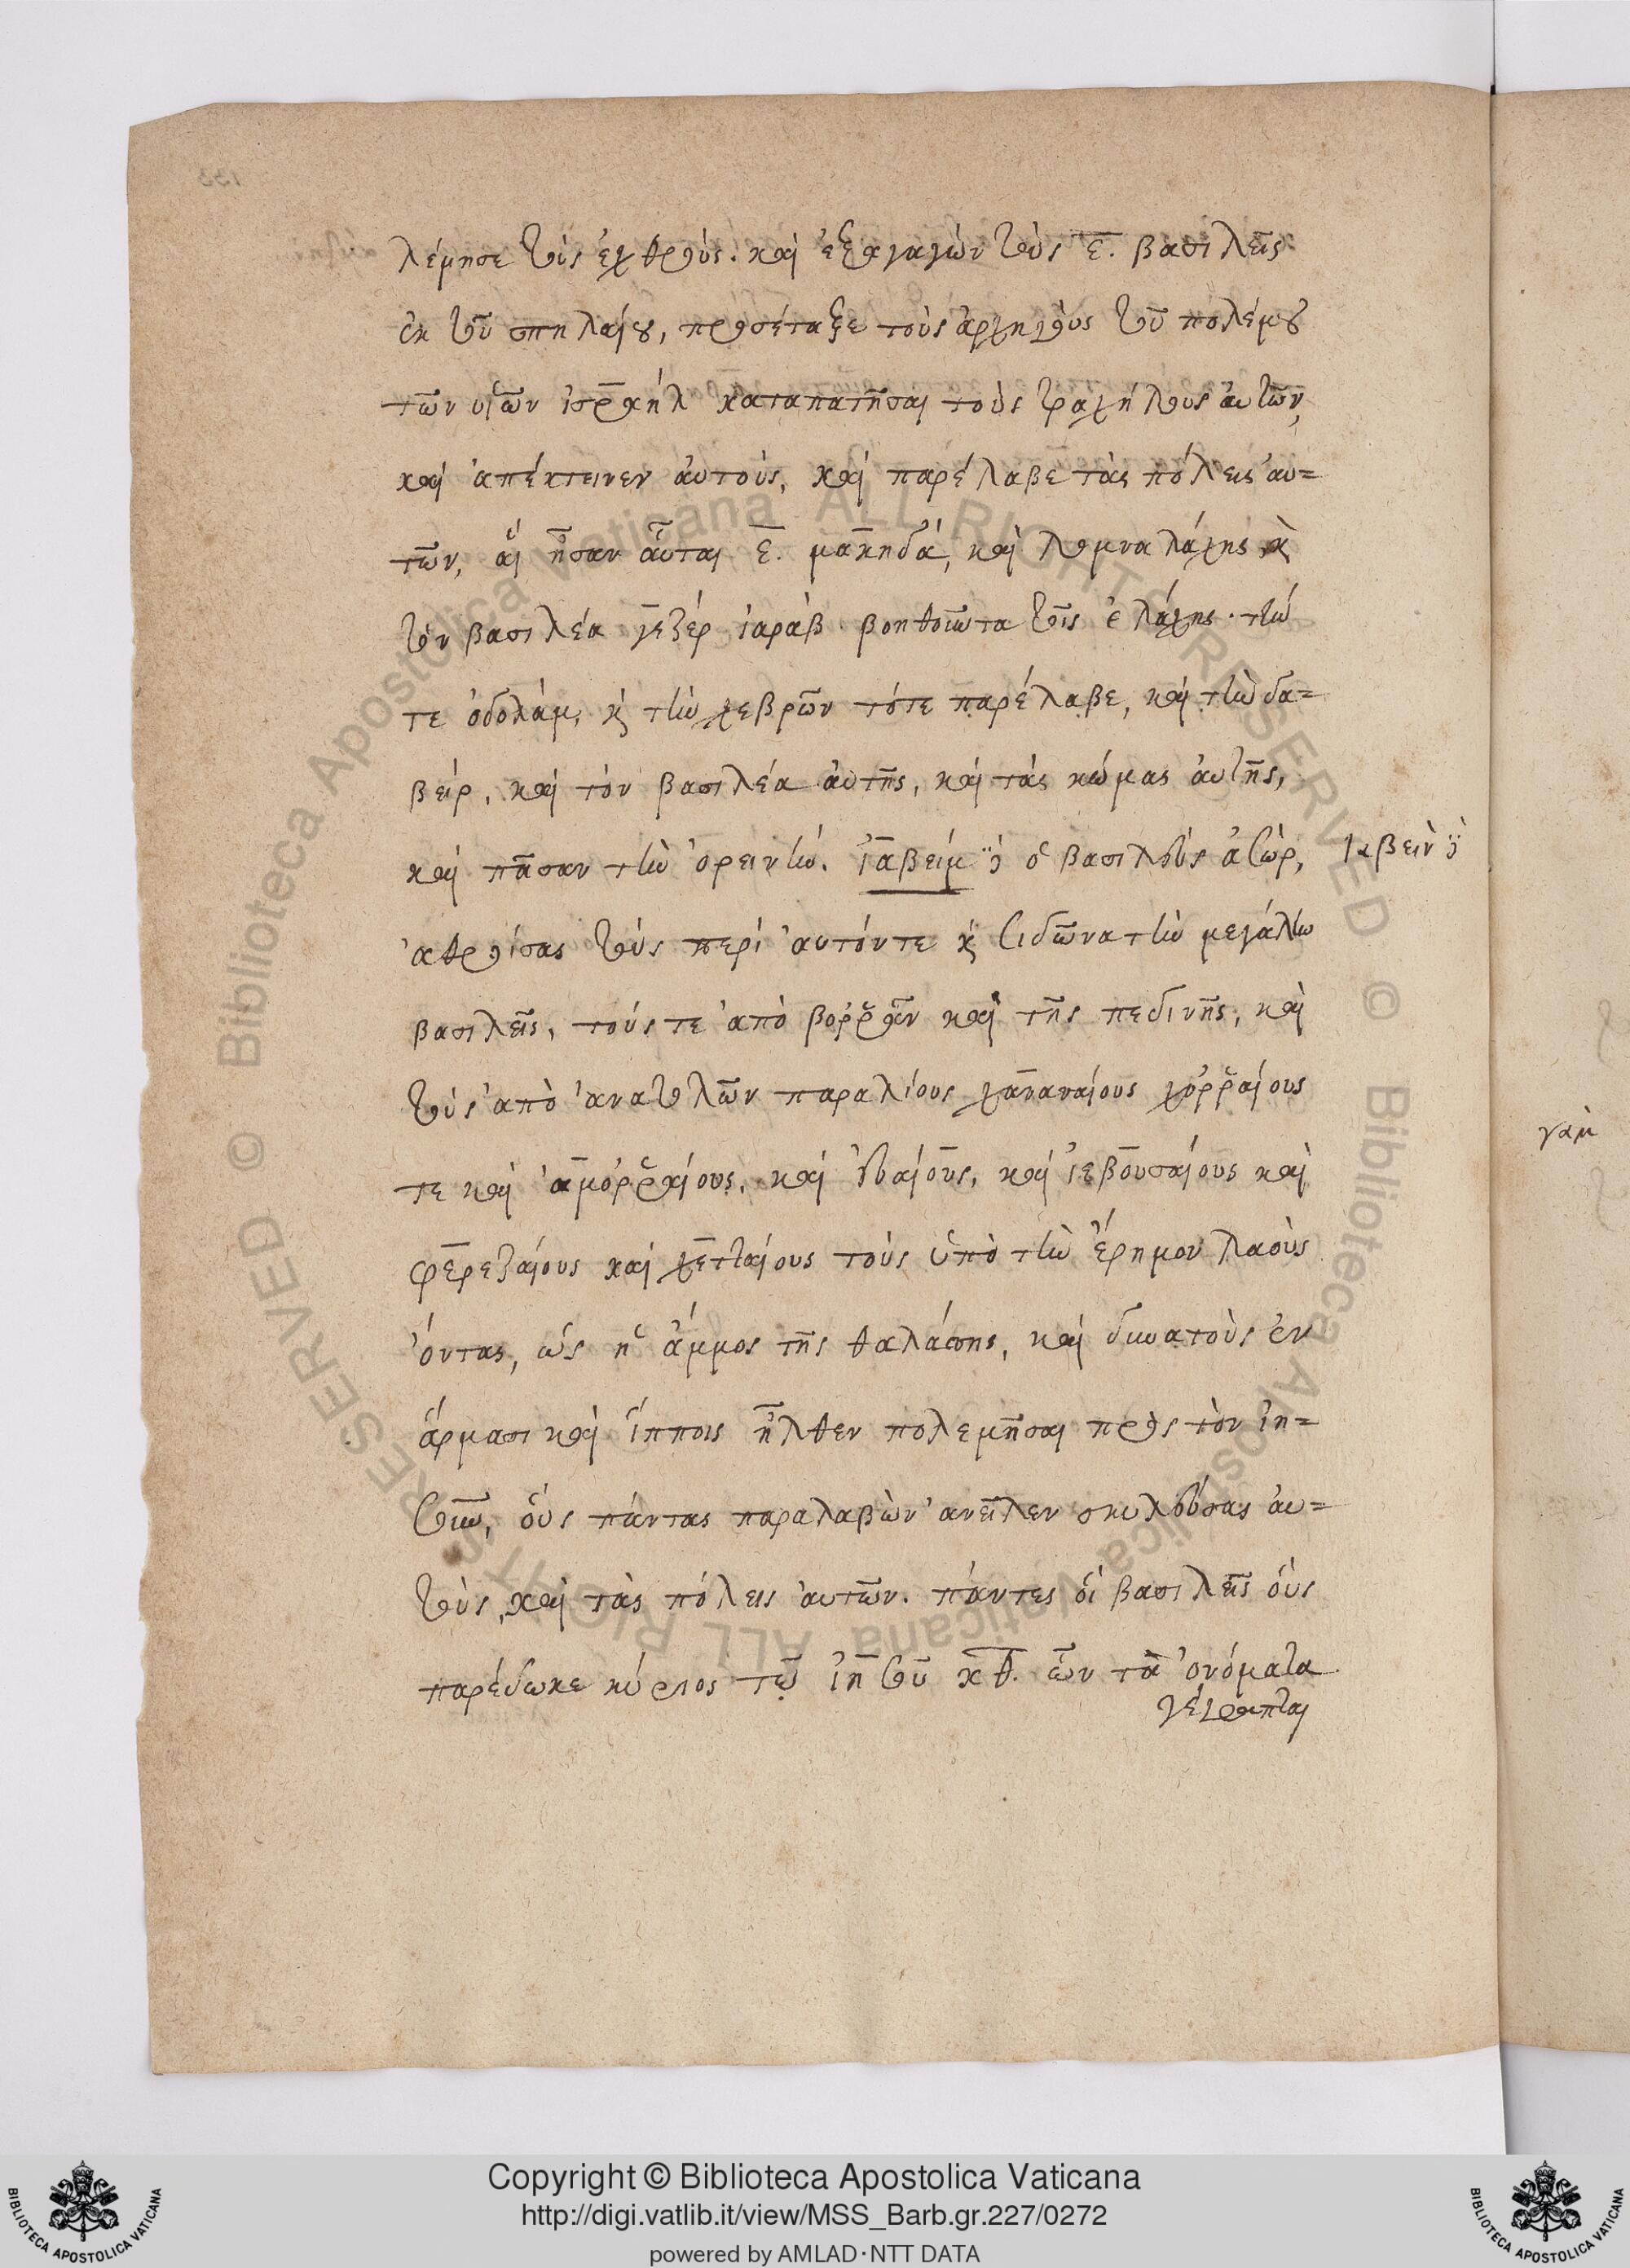 λέμησε τοὺς ἐχθρούς. καὶ ἐξαγαγὼν τοὺς ε̅. βασιλεῖς
ἐκ τοῦ σπηλαίου, προσέταξε τοὺς ἀρχηγοὺς τοῦ πολέμου
τῶν υἱῶν ἰσραὴλ καταπατῆσαι τοὺς τραχήλους αὐτῶν,
καὶ ἀπέκτεινεν αὐτούς, καὶ παρέλαβε τὰς πόλεις αὐ=
τῶν, αἵ ἦσαν αὗται ε̅. μακηδά, καὶ λομνα λάχης, κ
τὸν βασιλέα γεζέρ ἰαράβ βοηθοῦντα τοῖς ἐ λάχης. τήν
τε ὀδολάμ, κ τὴν χεβρῶν τότε παρέλαβε, καὶ τὴν δα=
βείρ, καὶ τὸν βασιλέα αὐτῆς, καὶ τὰς κώμας αὐτῆς,
καὶ πᾶσαν τὴν ὀρεινήν. ἰαβείμ ὁ βασιλεὺς ἀσώρ,
Ιαβεὶν
ἀθροίσας τοὺς περὶ αὐτόντε κ σιδῶνα τὴν μεγάλην
βασιλεῖς, τούς τε ἀπὸ βορρᾶν καὶ τῆς πεδινῆς, καὶ
τοὺς ἀπὸ ἀνατολῶν παραλίους χαναναίους χορραίους
τε καὶ ἀμορραίους, καὶ εὐαίους, καὶ ἰεβουσαίους καὶ
φερεζαίους καὶ χετταίους τοὺς ὑπὸ τὴν ἔρημον λαοὺς
ὄντας, ὡς ἡ ἄμμος τῆς θαλάσσης, καὶ δυνατοὺς ἐν
ἅρμασι καὶ ἵπποις ἦλθεν πολεμῆσαι πρὸς τὸν ἰη=
σοῦν, οὓς πάντας παραλαβὼν ἀνεῖλεν σκυλεύσας αὐ=
τούς, καὶ τὰς πόλεις αὐτῶν. πάντες οἱ βασιλεῖς οὓς
παρέδωκε κύριος τῷ ἰησοῦ κ̅θ̅. ὧν τὰ ὀνόματα
γέγραπται
γὰμ
Copyright © Biblioteca Apostolica Vaticana
http://digi.vatlib.it/view/MSS_Barb.gr.227/0272
powered by AMLAD·NTT DATA
BIBLIOTECA APOSTOLICA VATICANA
BIBLIOTECA APOSTOLICA VATICANA
© Biblioteca Apostolica Vaticana ALL RIGHTS RESERVED
© Biblioteca Apostolica Vaticana ALL RIGHTS RESERVED